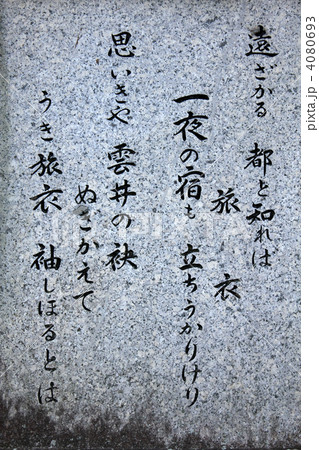 遠ざかる 都と知れは
旅衣
一夜の宿も 立ちうかりけり
思いきや 雲井の袂
ぬぎかえて
うき旅衣 袖しほるとは
PIXTA
pixta.jp - 4080693